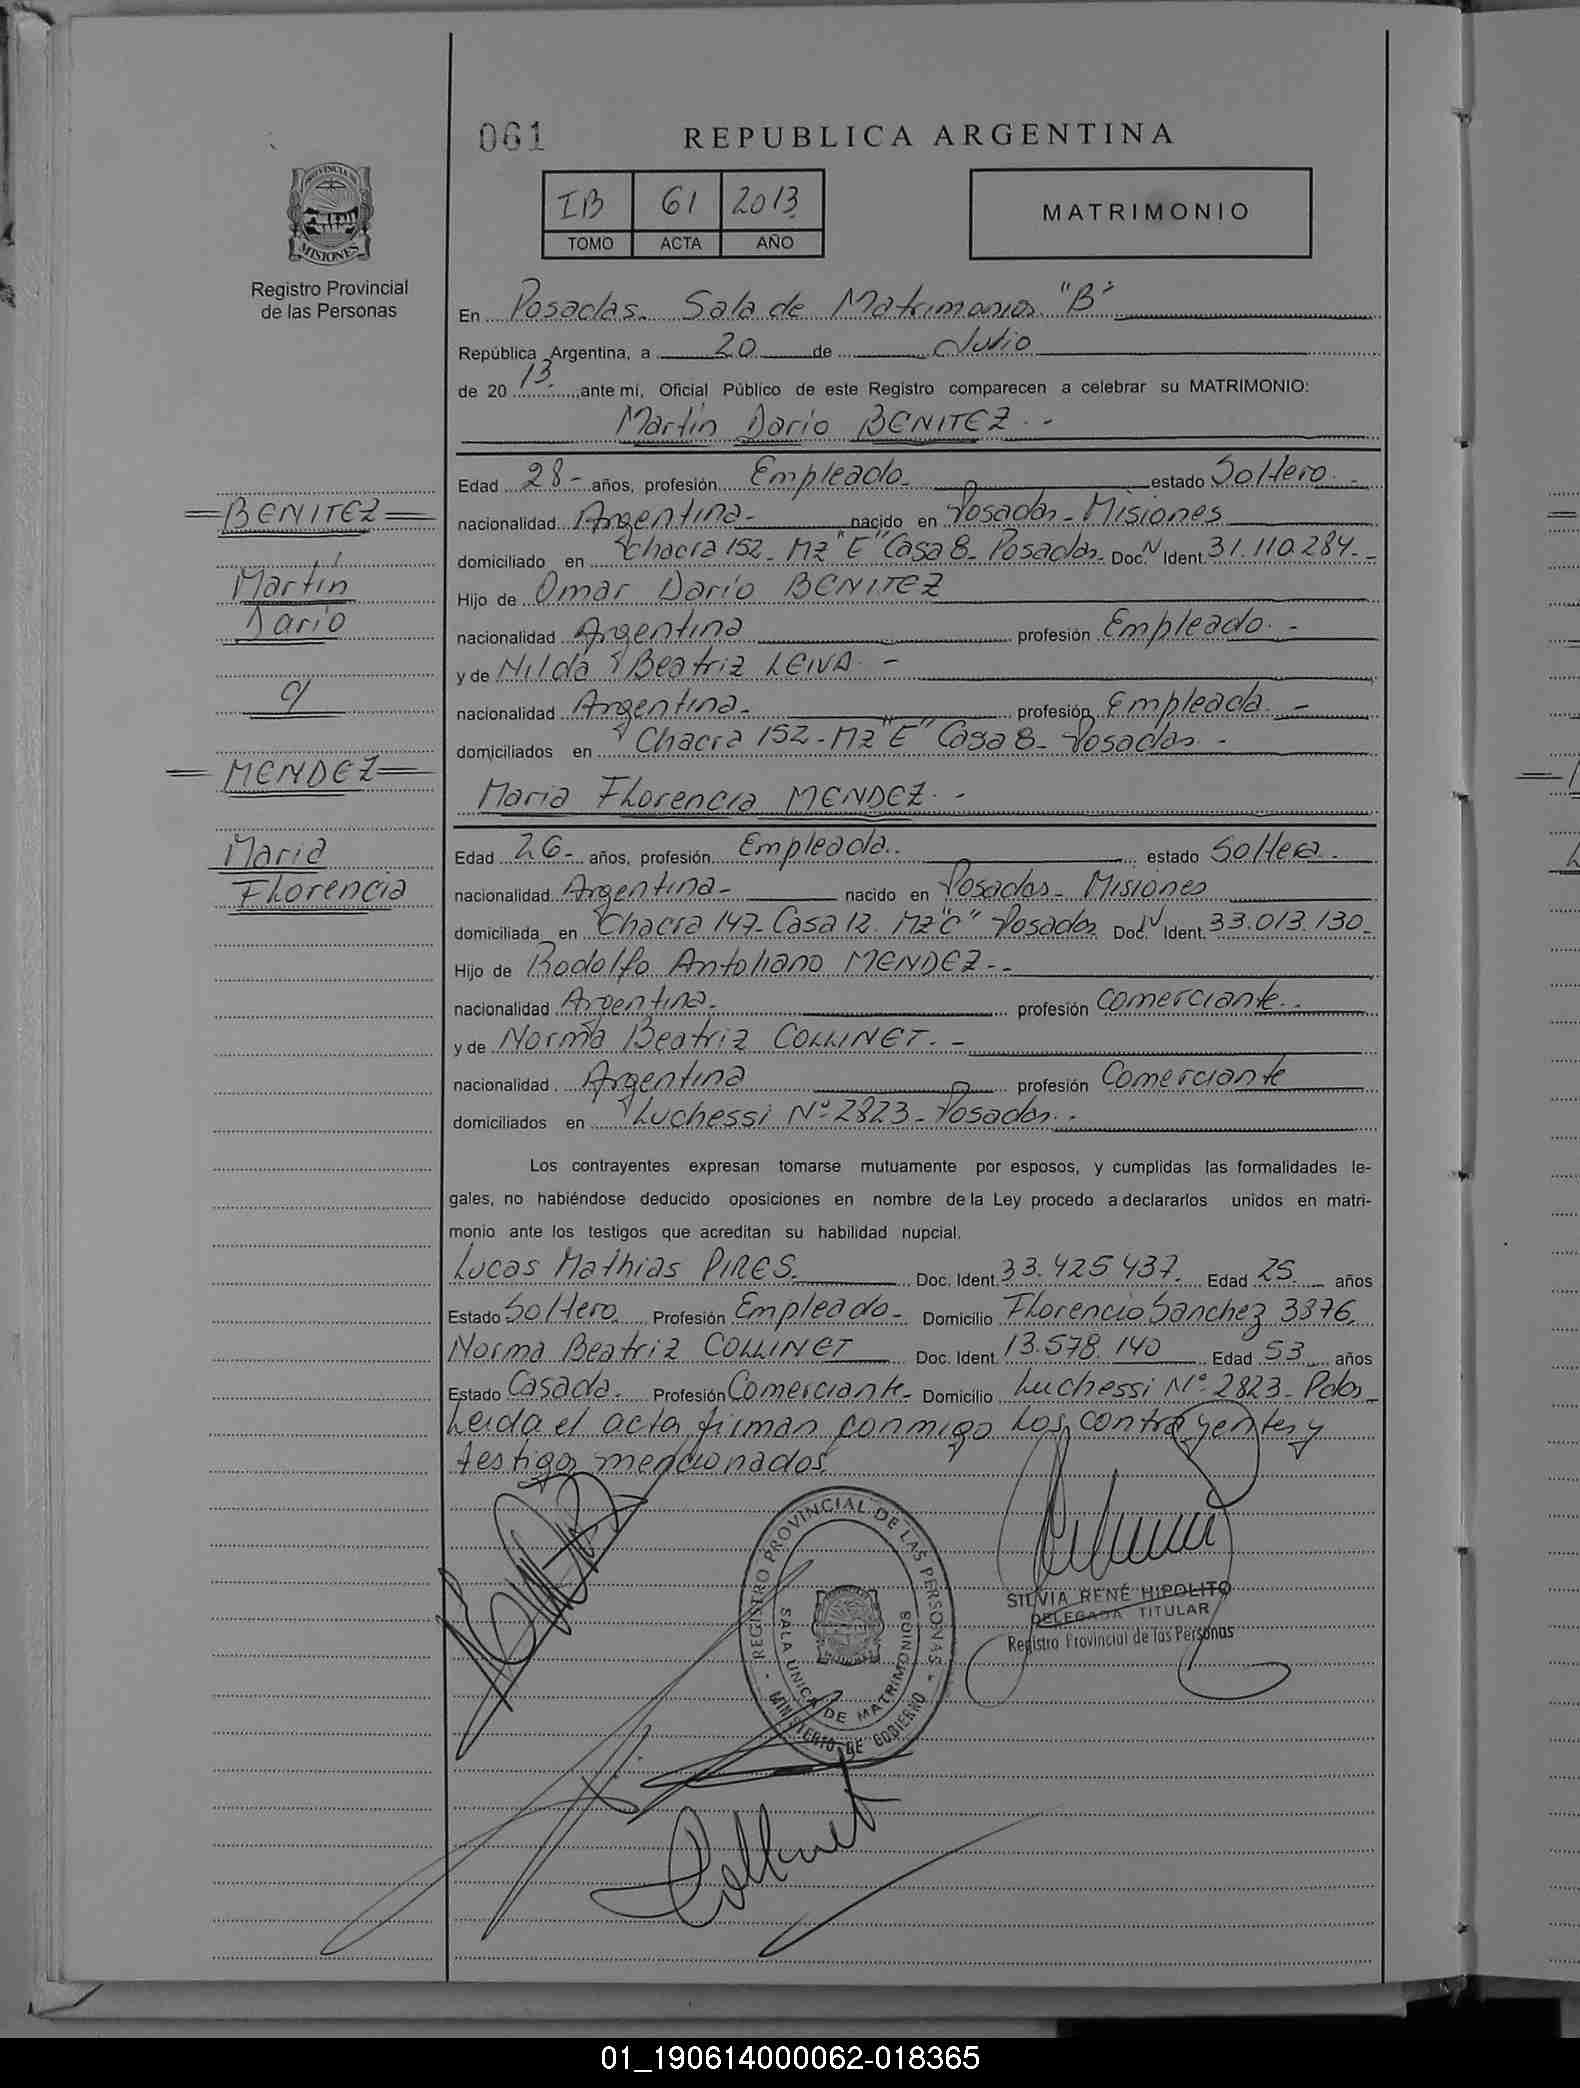 061
REPUBLICA ARGENTINA
PROVINCIA DE
MISIONES
Registro Provincial
de las Personas
IB 61 2013
TOMO ACTA AÑO
MATRIMONIO
En Posadas. Sala de Matrimonios "B"
República Argentina, a 20 de Julio
de 20 13. ,ante mí, Oficial Público de este Registro comparecen a celebrar su MATRIMONIO:
Martín Darío BENITEZ. -
Edad 28- años, profesión Empleado- estado Soltero. -
nacionalidad Argentina- nacido en Posadas - Misiones
domiciliado en Chacra 152 - Mz "E" Casa 8- Posadas- Doc. N Ident. 31.110.284- -
Hijo de Omar Darío BENITEZ
nacionalidad Argentina profesión Empleado. -
y de Nilda Beatriz LEIVA. -
nacionalidad Argentina- profesión Empleada. -
domiciliados en Chacra 152 - Mz "E" Casa 8- Posadas. -
=BENITEZ=
Martín
Darío
c/
=MENDEZ=
Maria
Florencia
Maria Florencia MENDEZ. -
Edad 26- años, profesión Empleada.. estado Soltera. -
nacionalidad Argentina- nacido en Posadas - Misiones
domiciliada en Chacra 147- Casa 12. Mz "C" Posadas Doc. N Ident. 33.013.130-
Hijo de Rodolfo Antoliano MENDEZ- -
nacionalidad Argentina- profesión comerciante. -
y de Norma Beatriz COLLINET. -
nacionalidad Argentina profesión Comerciante
domiciliados en Luchessi Nº 2823- Posadas. -
Los contrayentes expresan tomarse mutuamente por esposos, y cumplidas las formalidades le-
gales, no habiéndose deducido oposiciones en nombre de la Ley procedo a declararlos unidos en matri-
monio ante los testigos que acreditan su habilidad nupcial.
Lucas Mathias PIRES. Doc. Ident. 33.425.437. Edad 25. años
Estado Soltero. Profesión Empleado- Domicilio Florencio Sanchez 3376.
Norma Beatriz COLLINET Doc. Ident. 13.578.140 Edad 53 años
Estado Casada. Profesión Comerciante- Domicilio Luchessi Nº 2823- Pdas-
Leida el acta firman conmigo los contrayentes y
testigos mencionados.
REGISTRO PROVINCIAL DE LAS PERSONAS
SALA UNICA DE MATRIMONIOS
MINISTERIO DE GOBIERNO
SILVIA RENÉ HIPOLITO
DELEGADA TITULAR
Registro Provincial de las Personas
Collinet
01_190614000062-018365